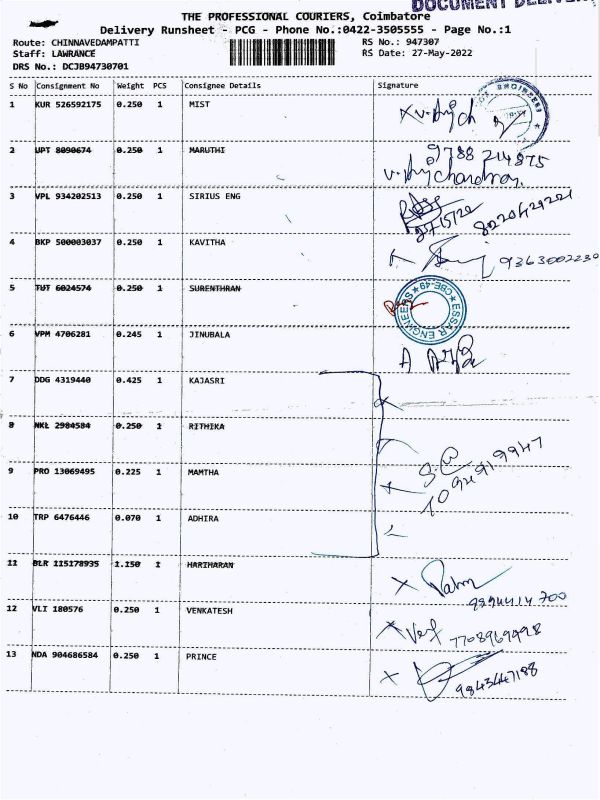 DOCUMENT DELIVERY
THE PROFESSIONAL COURIERS, Coimbatore
Delivery Runsheet - PCG - Phone No.:0422-3505555 - Page No.:1
Route: CHINNAVEDAMPATTI RS No.: 947307
Staff: LAWRANCE RS Date: 27-May-2022
DRS No.: DCJB94730701
S No Consignment No Weight PCS Consignee Details Signature
1 KUR 526592175 0.250 1 MIST
2 UPT 8090674 0.250 1 MARUTHI 9788214875
V. Ajychandran
3 VPL 934202513 0.250 1 SIRIUS ENG
27/5/22 8220429221
4 BKP 500003037 0.250 1 KAVITHA 9363002230
5 TUT 6024574 0.250 1 SURENTHRAN
ESSAR ENGINEERS CBE-49
6 VPM 4706281 0.245 1 JINUBALA
7 DDG 4319440 0.425 1 KAJASRI
8 NKL 2984584 0.250 1 RITHIKA
9 PRO 13069495 0.225 1 MAMTHA
10 TRP 6476446 0.070 1 ADHIRA
11 BLR 115178935 1.150 1 HARIHARAN
12 VLI 180576 0.250 1 VENKATESH
7708969998
13 NDA 904686584 0.250 1 PRINCE
9843447188